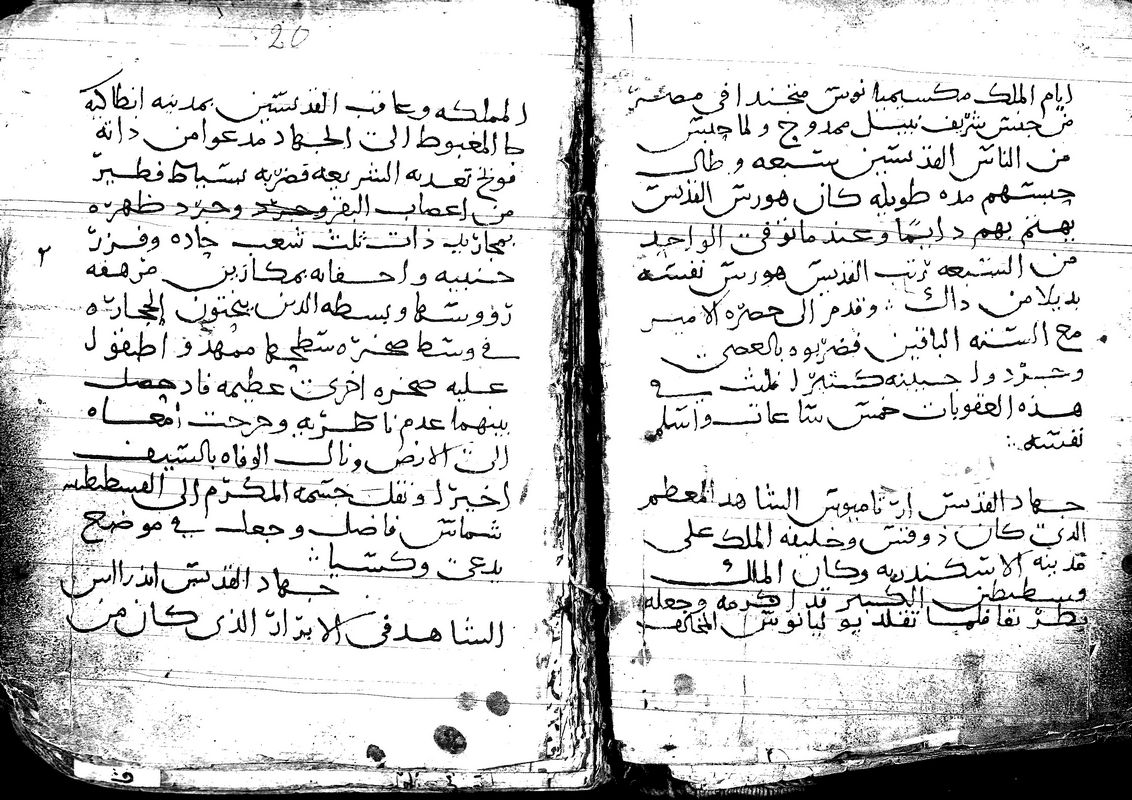 ايام الملك مكسيميانوس متجندا في مصر
من جنس شريف نبيل ممدوح ولما حبس
من الناس القديسين سبعه وطال
حبسهم مده طويله كان هورس القديس
يهتم بهم دايما وعندما توفي الواحد
من السبعه رتب القديس هورس نفسه
بديلا من داك وقدم الى حضره الامير
مع السته الباقين فضربوه بالعصي
وجردوا جبينه كثيرا فلبث في
هذه العقوبات خمس ساعات واسلم
نفسه
جهاد القديس ارتاميوس الشاهد المعظم
الذي كان ذوقس وخليفه الملك على
مدينه الاسكندريه وكان الملك
قسطنطين الكبير قد اكرمه وجعله
بطريقا فلما تقلد يوليانوس المخالف
20
المملكه وعاقب القديسين بمدينه انطاكيه
كالمغبوط الى الجهاد مدعوا من داته
فوبخ تعديه الشريعه فضربه بسياط فطير
من اعصاب البقر وجرد وجرد ظهره
بمجاريد ذات ثلث شعب حاده وفزر
جنبيه واجفانه بمكازين مرهفه
رؤوسها وبسطه الذين ينحتون الحجاره
في وسط صخره سطحها ممهد واطبقوا
عليه صخره اخرى عظيمه فاد حصل
بينهما عدم ناظريه وخرجت امعاه
الى الارض ونال الوفاه بالسيف
اخيرا ونقل جسمه المكرم الى القسطنطينيه
شماس فاضل وجعل في موضع
يدعى وكسيا
جهاد القديس اندراس
الشاهد في الابرار الذي كان من